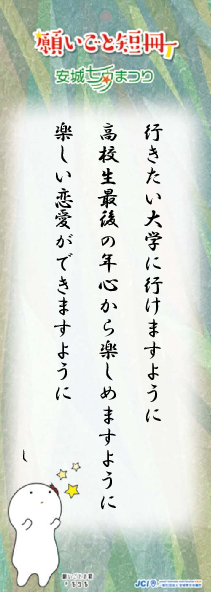 願いごと短冊
安城七夕まつり
行きたい大学に行けますように
高校生最後の年心から楽しめますように
楽しい恋愛ができますように
し
JCI